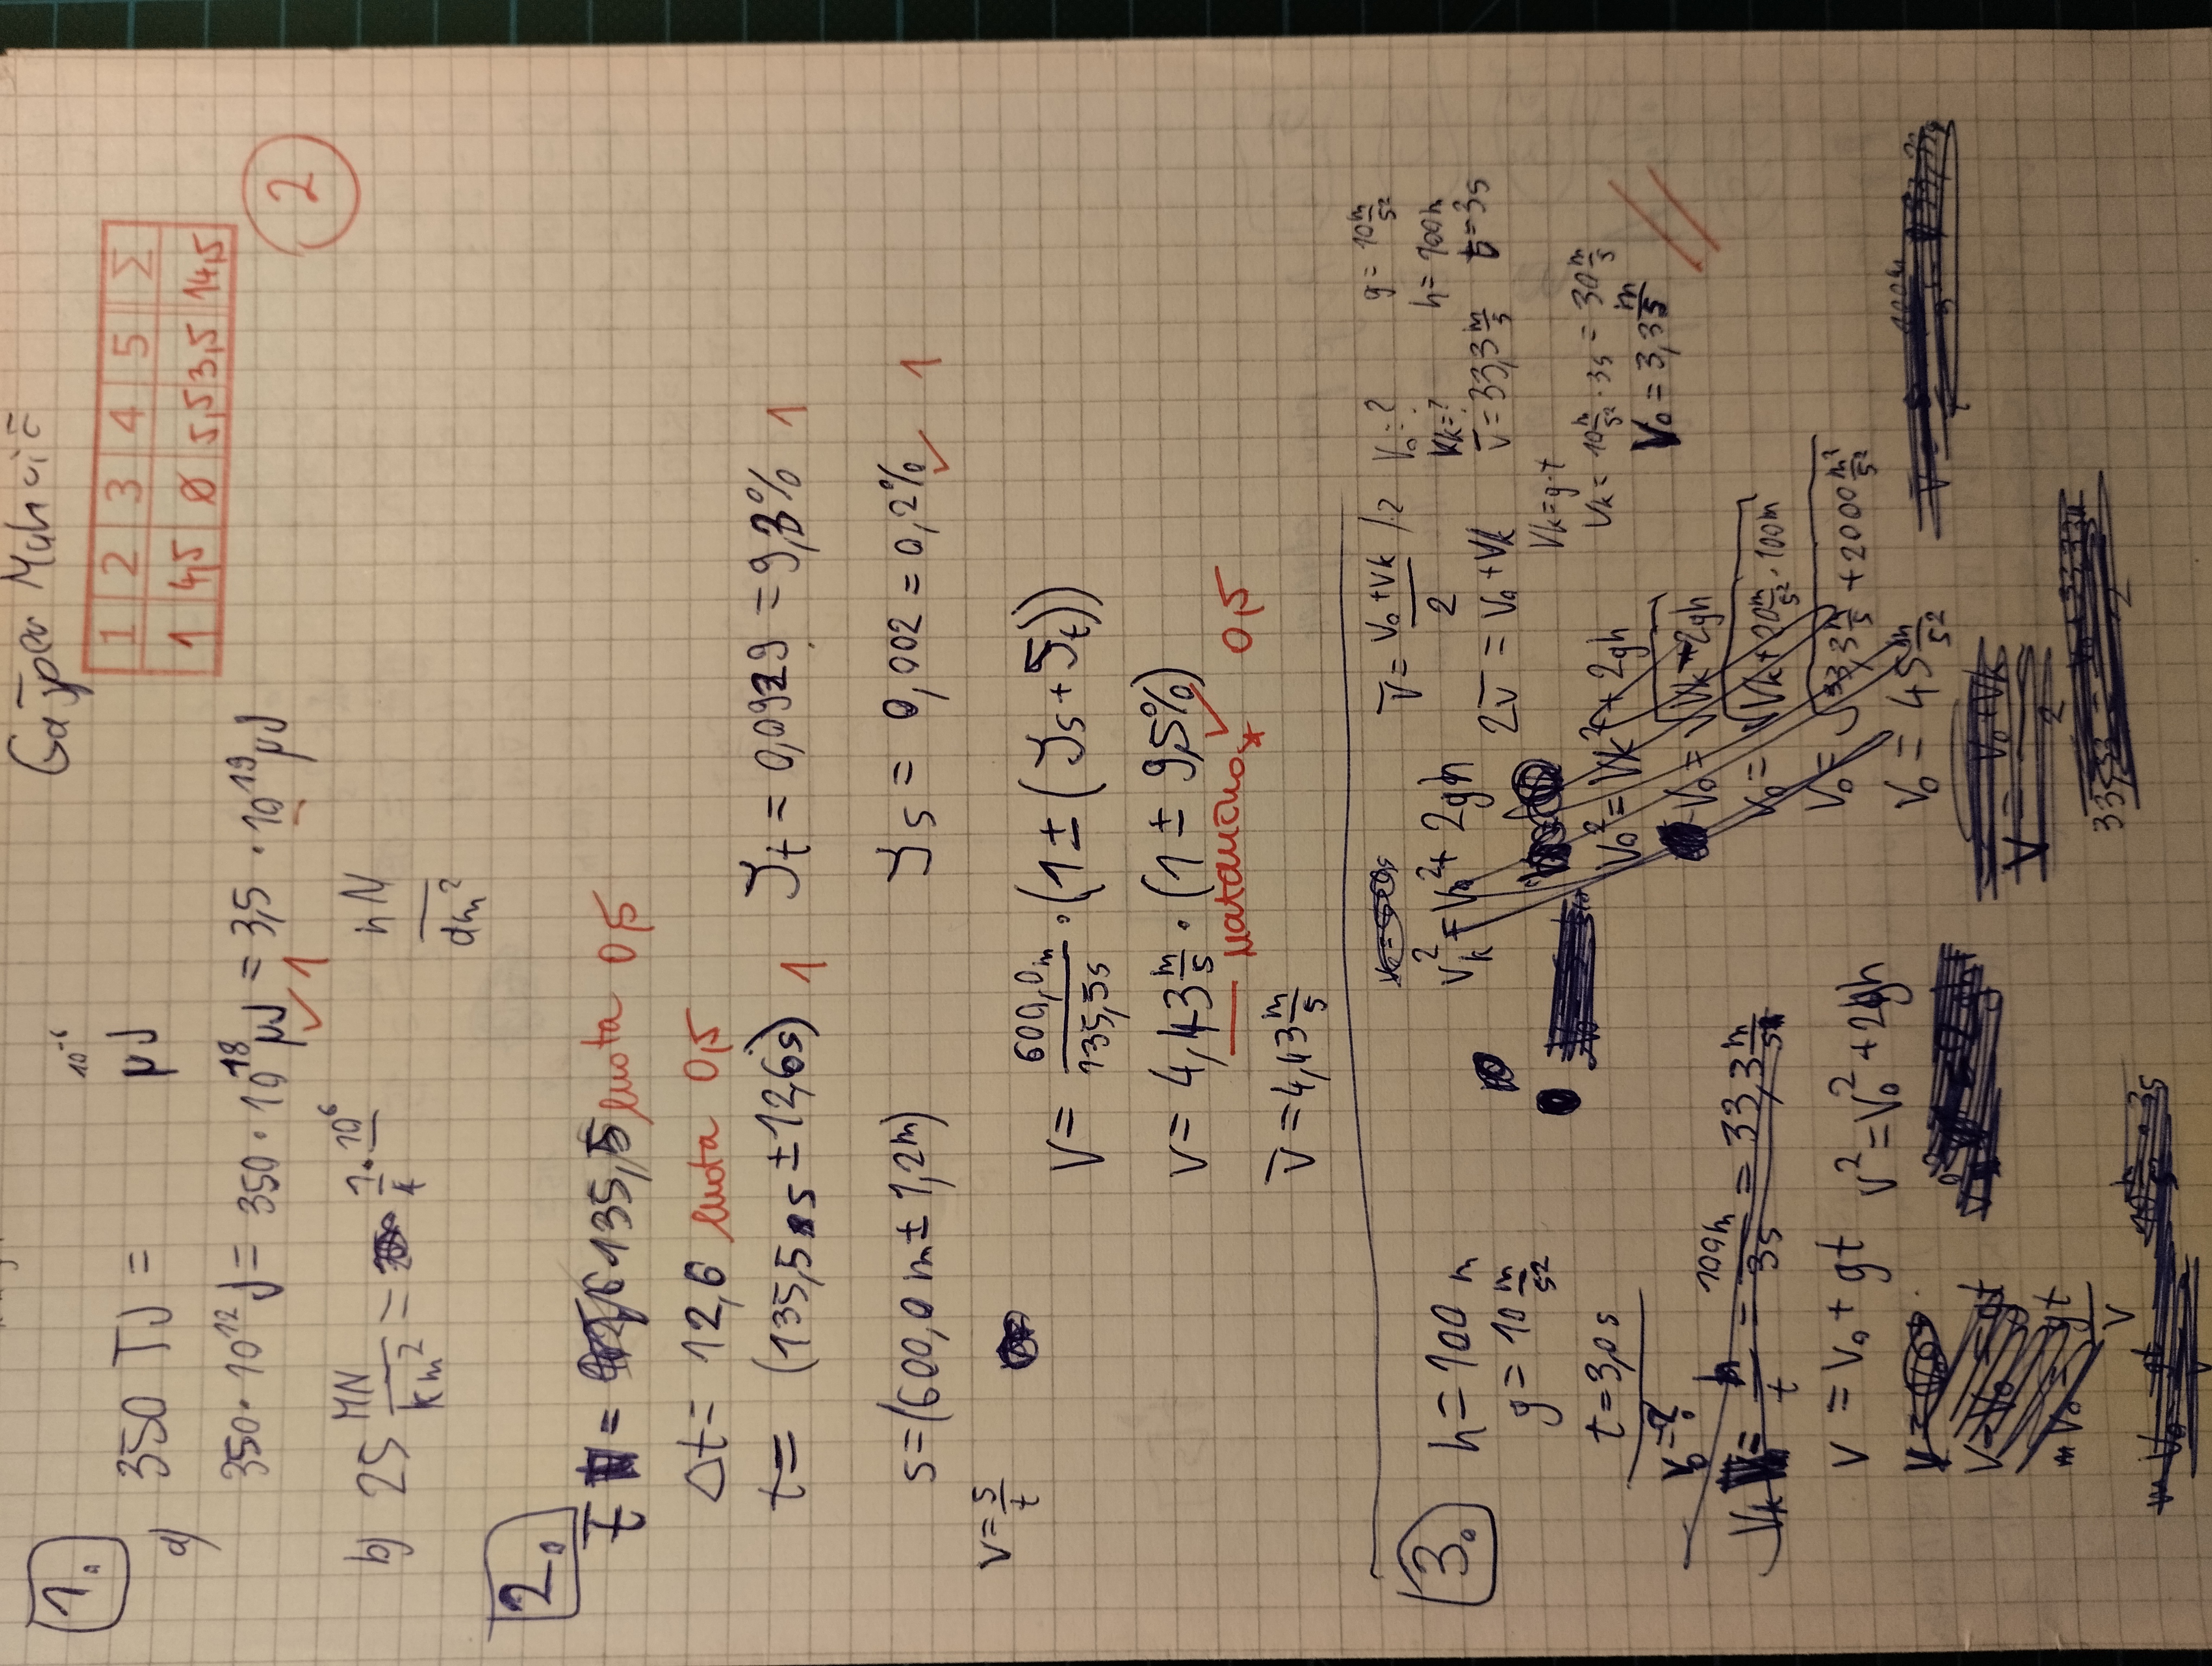 Gašper
1 2 3 4 5 Σ
1 4,5 Ø 5,5 3,5 14,5
2
1.
10⁻⁶
a) 350 TJ = μJ
350 · 10¹² J = 350 · 10¹⁸ μJ = 3,5 · 10¹⁹ μJ
✓ 1
b) 25 MN/km² = 1/4 · 10⁶ nN/dm²
2.
t̄ = 135,5 enota 0,5
Δt = 12,6 enota 0,5
t = (135,5 s ± 12,6s) 1 𝒥t = 0,0929 = 9,3% 1
s = (600,0 m ± 1,2m) 𝒥s = 0,002 = 0,2% ✓ 1
v = s/t
v = 600,0m/135,5s · (1 ± (𝒥s + 𝒥t))
v = 4,43 m/s · (1 ± 9,5%) ✓
natančno * 0,5
v̄ = 4,43 m/s
3.
h = 100 m
g = 10 m/s²
t = 3,0 s
v₀ = ?
Vk = h/t = 100m/3s = 33,3 m/s
v = v₀ + gt v² = v₀² + 2gh
v = v₀ = gt
v₀ = gt/v
vk² = v₀² + 2gh
v₀² = vk² + 2gh
v₀ = √vk + 2gh
v₀ = √vk + 20 m/s² · 100m
v₀ = √33,3 m/s + 2000 m²/s²
v₀ = 45 m/s²
v = v₀ + vk/2
v̄ = v₀ + vk/2 /·2
2v̄ = v₀ + vk
v₀ = ? g = 10 m/s²
vk = ? h = 100m
v̄ = 33,3 m/s t = 3s
vk = g·t
vk = 10 m/s² · 3s = 30 m/s
v₀ = 3,3 m/s